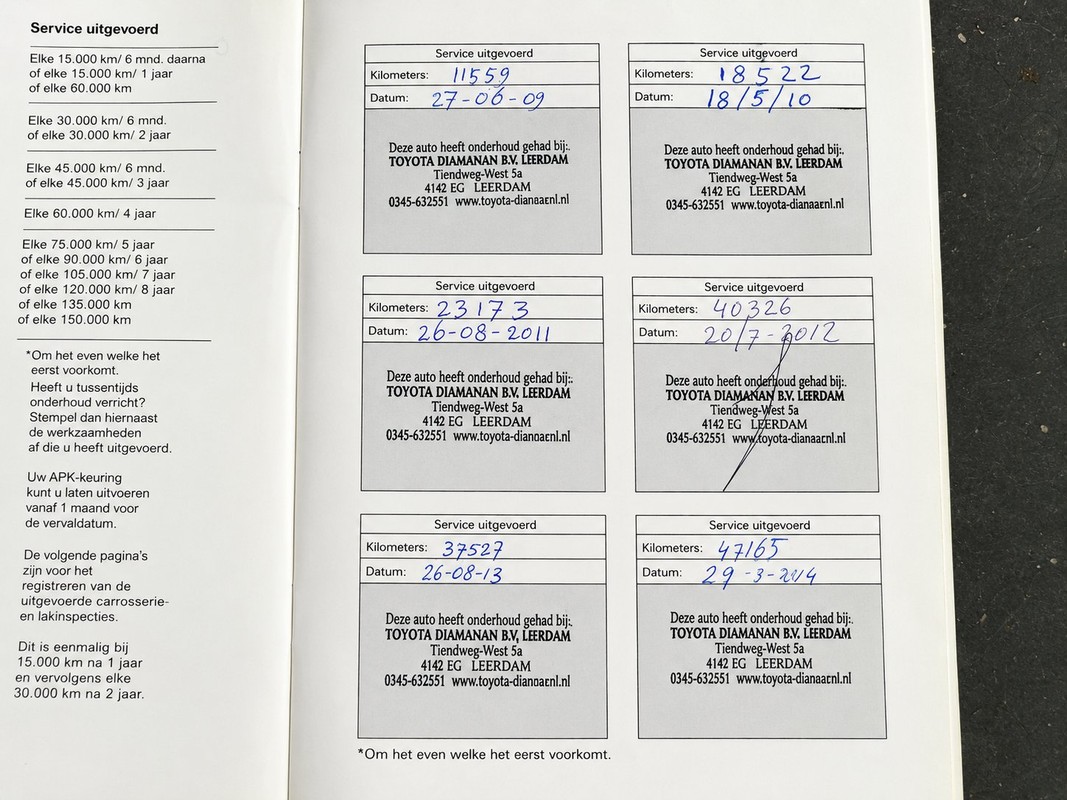 Service uitgevoerd
Elke 15.000 km/ 6 mnd. daarna
of elke 15.000 km/ 1 jaar
of elke 60.000 km
Elke 30.000 km/ 6 mnd.
of elke 30.000 km/ 2 jaar
Elke 45.000 km/ 6 mnd.
of elke 45.000 km/ 3 jaar
Elke 60.000 km/ 4 jaar
Elke 75.000 km/ 5 jaar
of elke 90.000 km/ 6 jaar
of elke 105.000 km/ 7 jaar
of elke 120.000 km/ 8 jaar
of elke 135.000 km
of elke 150.000 km
*Om het even welke het
eerst voorkomt.
Heeft u tussentijds
onderhoud verricht?
Stempel dan hiernaast
de werkzaamheden
af die u heeft uitgevoerd.
Uw APK-keuring
kunt u laten uitvoeren
vanaf 1 maand voor
de vervaldatum.
De volgende pagina's
zijn voor het
registreren van de
uitgevoerde carrosserie-
en lakinspecties.
Dit is eenmalig bij
15.000 km na 1 jaar
en vervolgens elke
30.000 km na 2 jaar.
Service uitgevoerd
Kilometers: 11559
Datum: 27-06-09
Deze auto heeft onderhoud gehad bij:.
TOYOTA DIAMANAN B.V. LEERDAM
Tiendweg-West 5a
4142 EG LEERDAM
0345-632551 www.toyota-dianaaɛnl.nl
Service uitgevoerd
Kilometers: 18522
Datum: 18/5/10
Deze auto heeft onderhoud gehad bij:.
TOYOTA DIAMANAN B.V. LEERDAM
Tiendweg-West 5a
4142 EG LEERDAM
0345-632551 www.toyota-dianaaɛnl.nl
Service uitgevoerd
Kilometers: 23173
Datum: 26-08-2011
Deze auto heeft onderhoud gehad bij:.
TOYOTA DIAMANAN B.V. LEERDAM
Tiendweg-West 5a
4142 EG LEERDAM
0345-632551 www.toyota-dianaaɛnl.nl
Service uitgevoerd
Kilometers: 40326
Datum: 20/7-2012
Deze auto heeft onderhoud gehad bij:.
TOYOTA DIAMANAN B.V. LEERDAM
Tiendweg-West 5a
4142 EG LEERDAM
0345-632551 www.toyota-dianaaɛnl.nl
Service uitgevoerd
Kilometers: 37527
Datum: 26-08-13
Deze auto heeft onderhoud gehad bij:.
TOYOTA DIAMANAN B.V, LEERDAM
Tiendweg-West 5a
4142 EG LEERDAM
0345-632551 www.toyota-dianaaɛnl.nl
Service uitgevoerd
Kilometers: 47165
Datum: 29-3-2014
Deze auto heeft onderhoud gehad bij:.
TOYOTA DIAMANAN B.V. LEERDAM
Tiendweg-West 5a
4142 EG LEERDAM
0345-632551 www.toyota-dianaaɛnl.nl
*Om het even welke het eerst voorkomt.